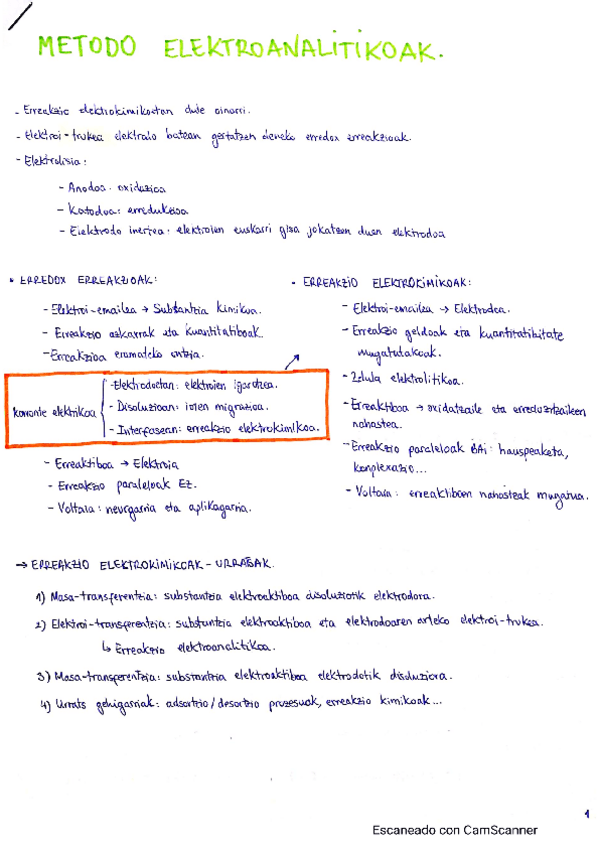 METODO ELEKTROANALITIKOAK.
- Erreakzio elektrokimikoetan dute oinarri.
- Elektroi-trukea elektrodo batean gertatzen deneko erredox erreakzioak.
- Elektrolisia:
- Anodoa: oxidazioa
- Katodoa: erredukzioa
- Elektrodo inertea: elektroien euskarri gisa jokatzen duen elektrodoa
• ERREDOX ERREAKZIOAK:
- Elektroi-emailea → Substantzia kimikoa.
- Erreakzio azkarrak eta kuantitatiboak.
- Erreakzioa eramateko ontzia.
korronte elektrikoa
- Elektrodoetan: elektroien igarotzea.
- Disoluzioan: ioien migrazioa.
- Interfasean: erreakzio elektrokimikoa.
- Erreaktiboa → Elektroia
- Erreakzio paraleloak Ez.
- Voltaia: neurgarria eta aplikagarria.
- ERREAKZIO ELEKTROKIMIKOAK:
- Elektroi-emailea → Elektrodoa.
- Erreakzio geldoak eta kuantitatibitate
mugatutakoak.
- Zelula elektrolitikoa.
- Erreaktiboa → oxidatzaile eta erreduzitzaileen
nahastea.
- Erreakzio paraleloak BAi: hauspeaketa,
konplexazio...
- Voltaia: erreaktiboen nahasteak mugatua.
→ ERREAKZIO ELEKTROKIMIKOAK - URRATSAK.
1) Masa-transferentzia: substantzia elektroaktiboa disoluziotik elektrodora.
2) Elektroi-transferentzia: substantzia elektroaktiboa eta elektrodoaren arteko elektroi-trukea.
↳ Erreakzio elektroanalitikoa.
3) Masa-transferentzia: substantzia elektroaktiboa elektrodotik disoluziora.
4) Urrats gehigarriak: adsortzio/desortzio prozesuak, erreakzio kimikoak...
1
Escaneado con CamScanner